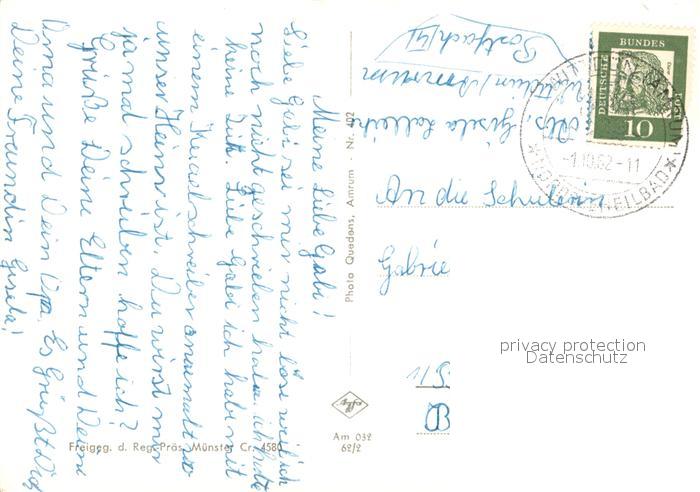 Meine Liebe Gabi!
Liebe Gabi sei mir nicht böse weil ich
noch nicht geschrieben habe ich hatte
keine Zeit. Liebe Gabi ich habe mit
einem Kugelschreiber anumalt wo
unser Heim ist. Du wirst mir
ja mal schreiben hoffe ich?
Grüße Deine Eltern und Deine
Oma und Dein Opa. Es Grüßt Dich
Deine Freundin Gisela!
Photo Quedens, Amrum Nr. 402
Abs. Gisela
Wittdün/Amrum
Postfach
DEUTSCHE BUNDESPOST
10
WITTDÜN (AMRUM)
-1.10.62-11
NORDSEEHEILBAD
An die Schülerin
Gabrie
privacy protection
Datenschutz
Agfa
Am 032
62/2
Freigeg. d. Reg. Präs. Münster Cr. 4580